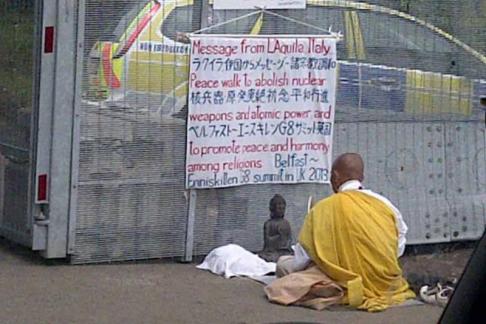 NON EMERGENCY
Message from L'Aquila, Italy
ラクイラ伊国からメッセージ・諸宗教調和
Peace walk to abolish nuclear
核兵器原発廃絶祈念平和行進
weapons and atomic power, and
ベルファスト～エニスキレンG8サミット英国
to promote peace and harmony
among religions Belfast~
Enniskillen G8 summit in UK 2013